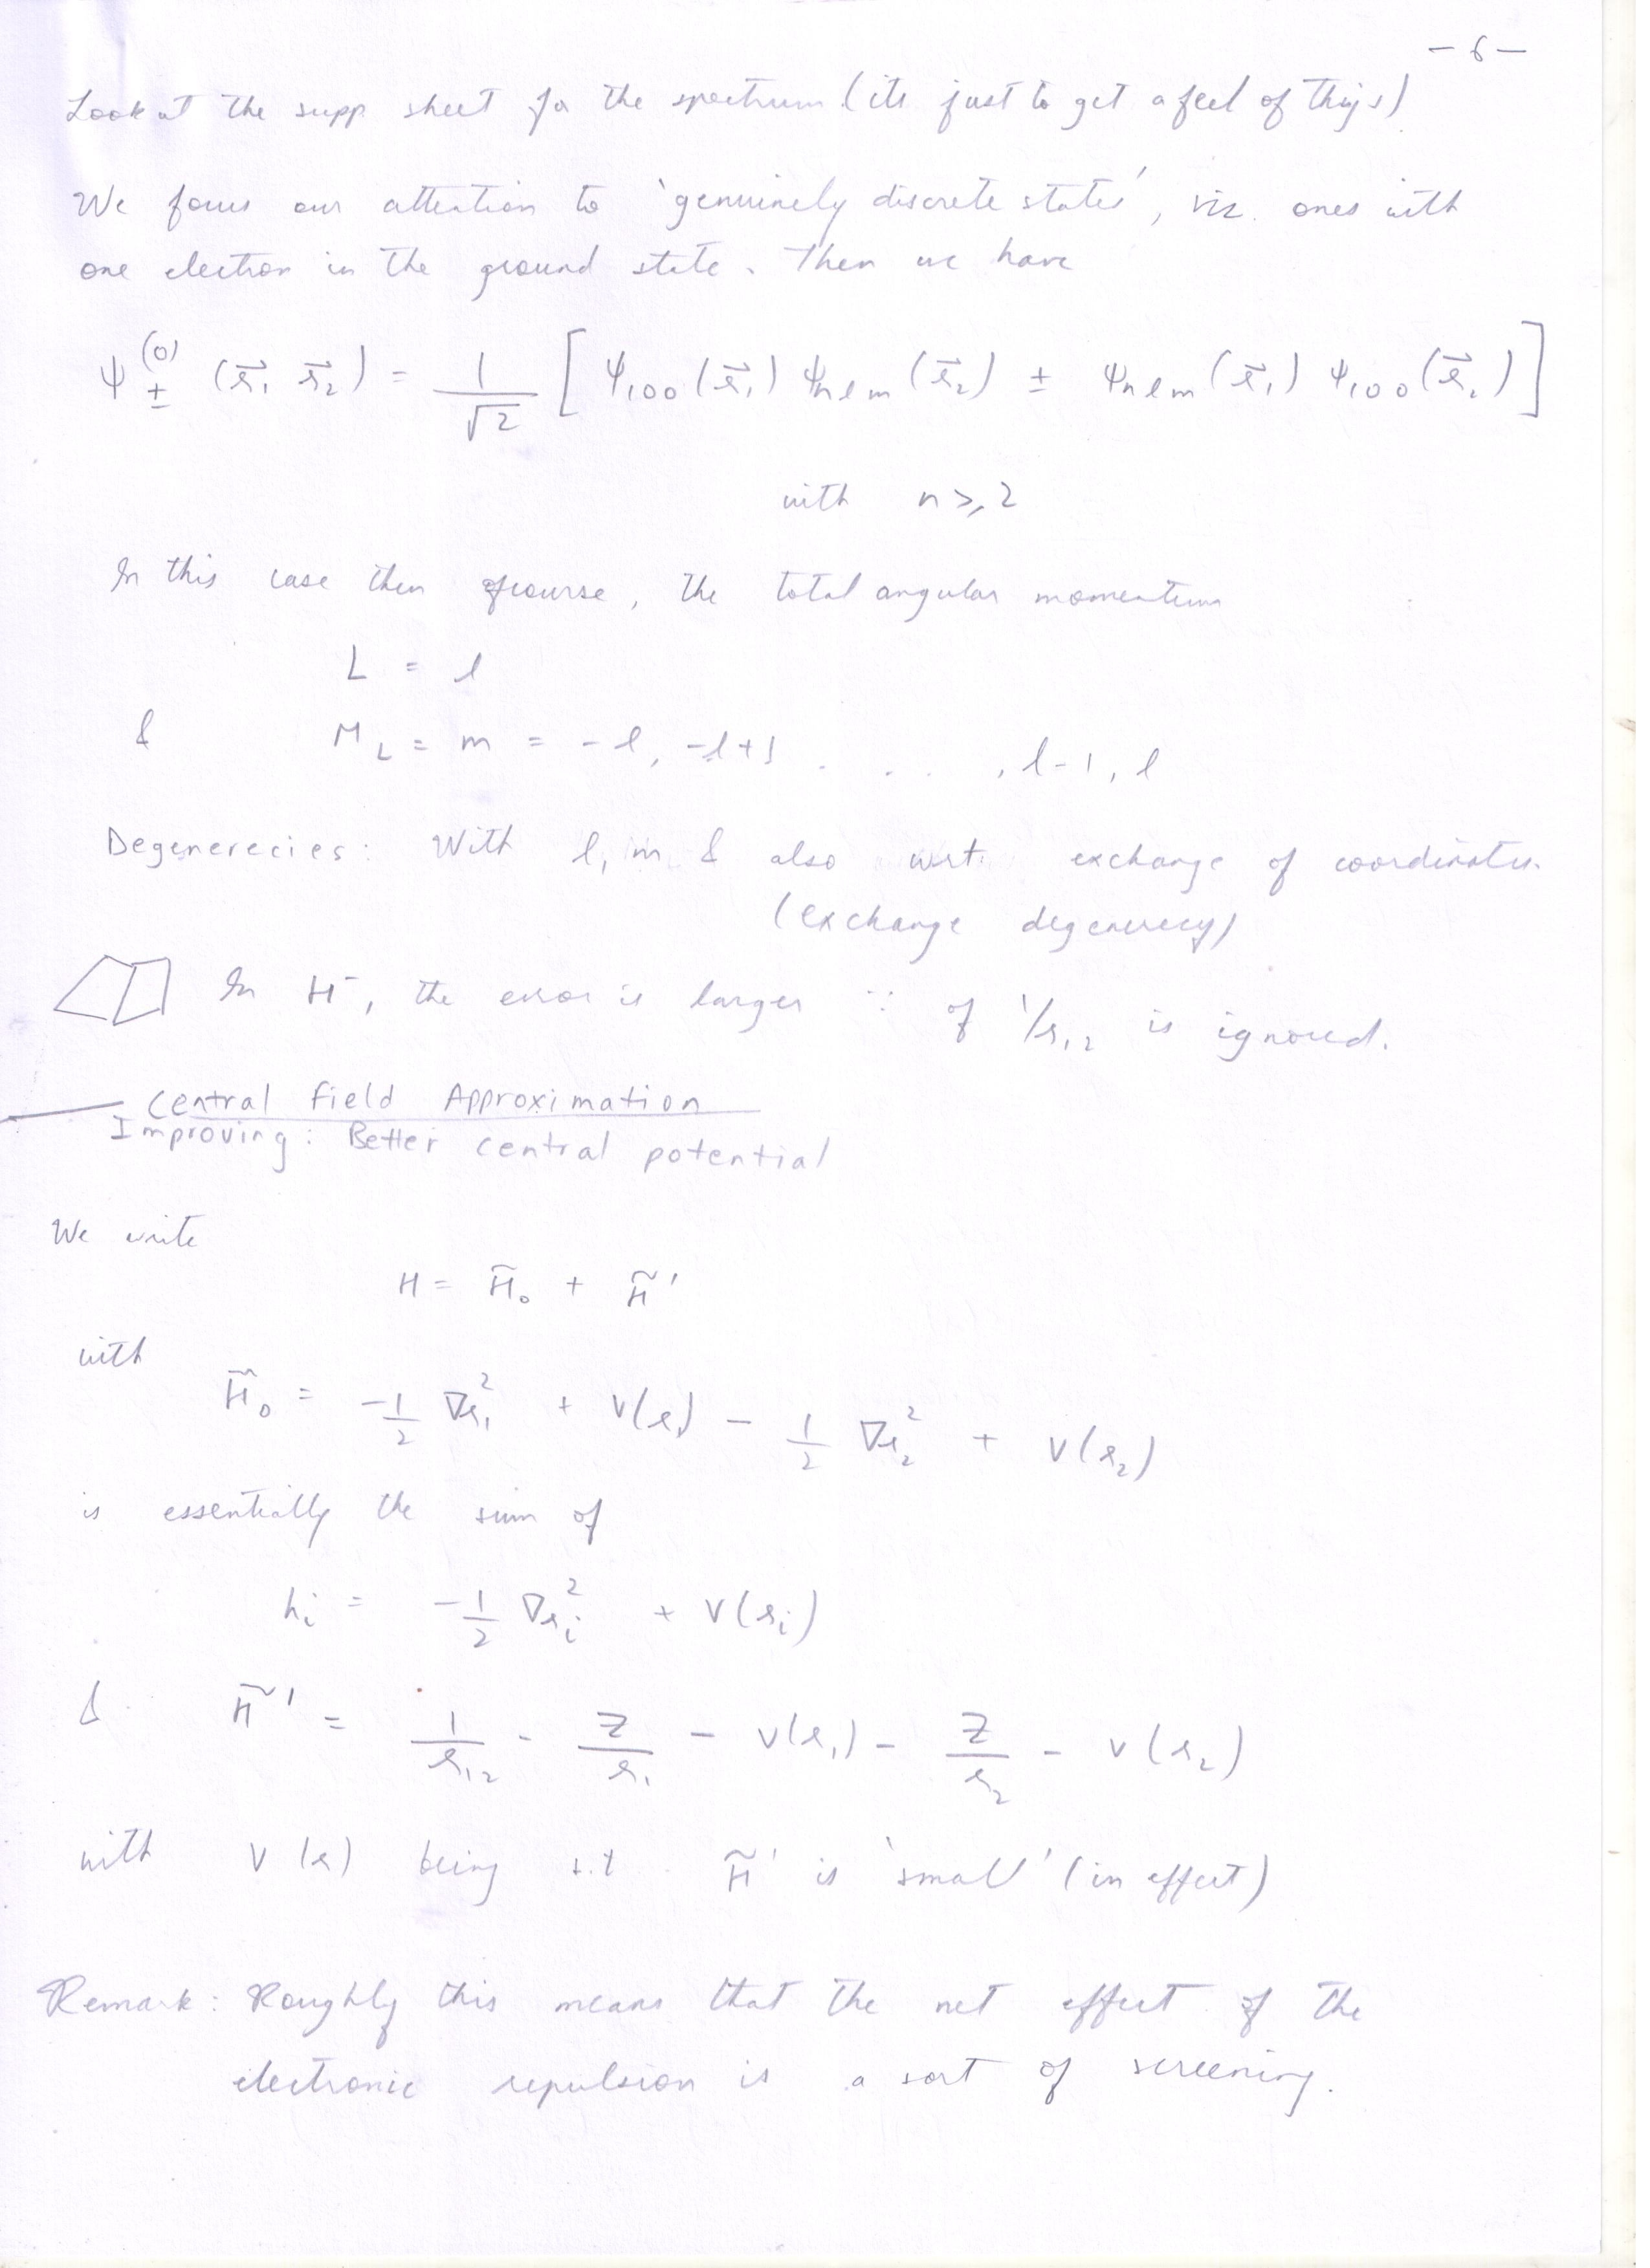 - 6 -
Look at the supp. sheet for the spectrum (its just to get a feel of things)
We focus our attention to 'genuinely discrete states', viz. ones with
one electron in the ground state. Then we have
ψ±^(0) (r⃗₁ r⃗₂) = 1/√2 [ψ₁₀₀(r⃗₁) ψₙₗₘ(r⃗₂) ± ψₙₗₘ(r⃗₁) ψ₁₀₀(r⃗₂)]
with n ≥ 2
In this case then ofcourse, the total angular momentum
L = l
& M_L = m = -l, -l+1 . . . . , l-1, l
Degenerecies: With l, m & also wrt. exchange of coordinates.
(exchange degenerecy)
In H⁻, the error is larger ∵ of 1/r₁₂ is ignored.
Central Field Approximation
Improving: Better central potential
We write
H = H̃₀ + H̃'
with
H̃₀ = -1/2 ∇²r₁ + V(r₁) - 1/2 ∇²r₂ + V(r₂)
is essentially the sum of
hᵢ = -1/2 ∇²rᵢ + V(rᵢ)
& H̃' = 1/r₁₂ - Z/r₁ - V(r₁) - Z/r₂ - V(r₂)
with V(r) being s.t. H̃' is 'small' (in effect)
Remark: Roughly this means that the net effect of the
electronic repulsion is a sort of screening.